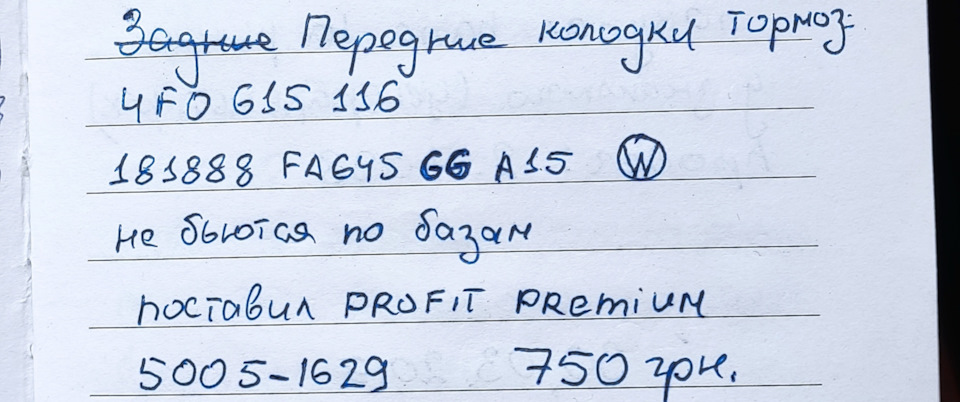 Задние Передние колодки тормоз.
4F0 615 116
181888 FA645 GG A15 VW
не бьются по базам
поставил PROFIT PREMIUM
5005-1629 750 грн.